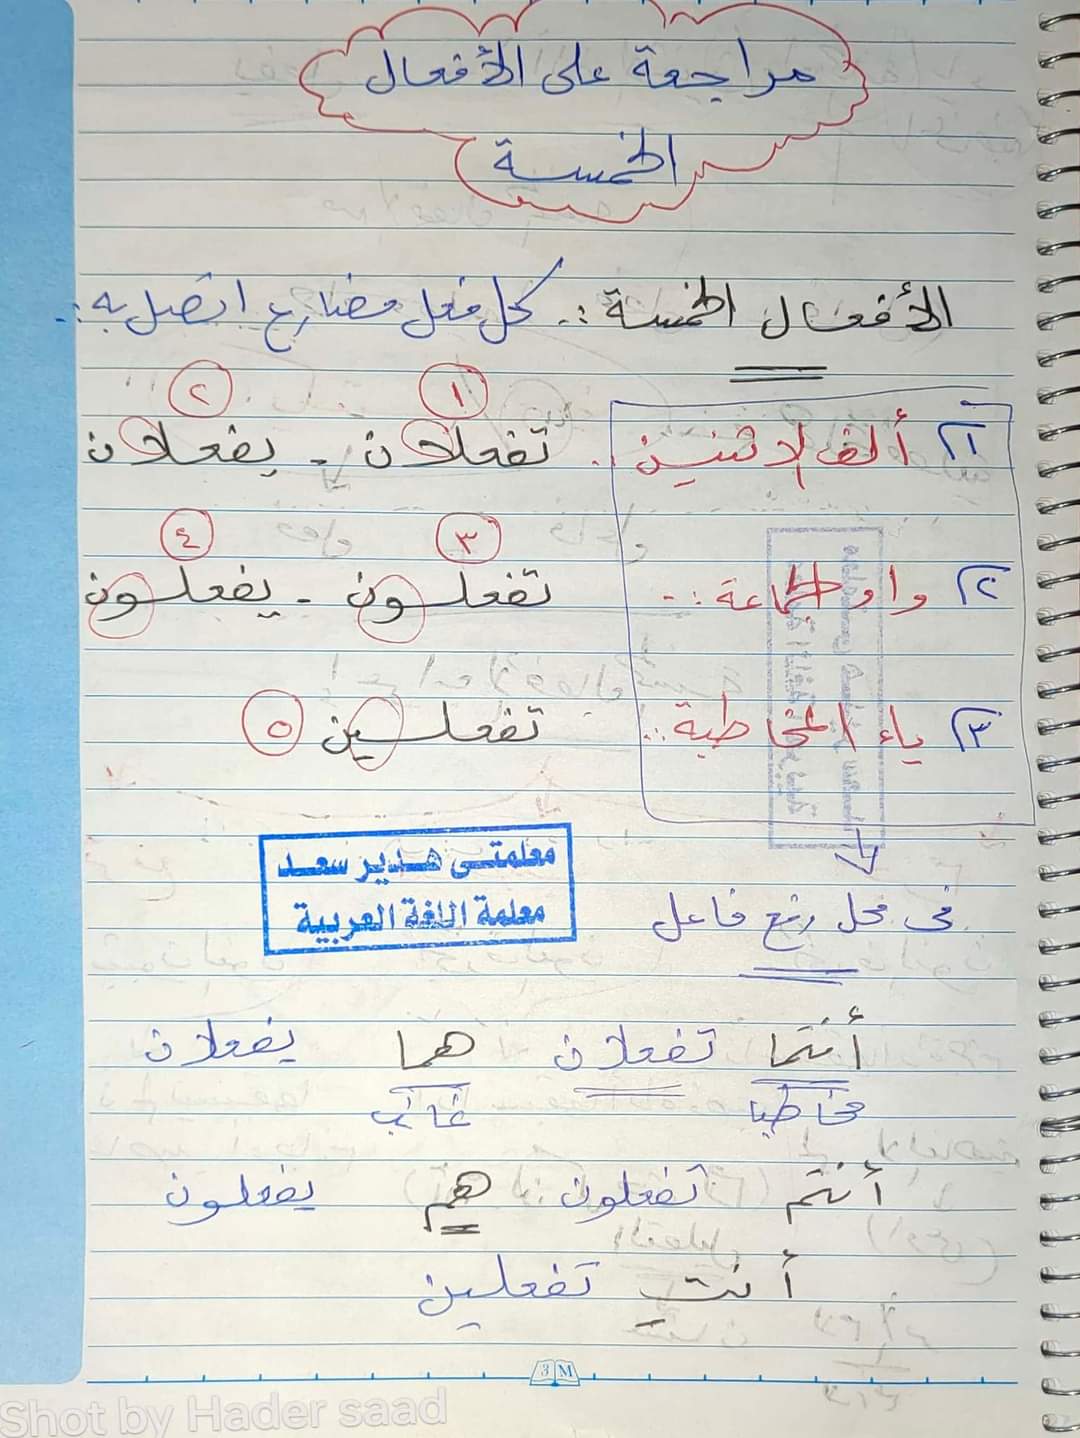 مراجعة على الأفعال
الخمسة
الأفعال الخمسة :. كل فعل مضارع اتصل به :.
١ ٢
١ ألف الاثنين :. تفعلان - يفعلان
٣ ٤
٢ واو الجماعة :. تفعلون - يفعلون
٣ ياء المخاطبة :. تفعلين ٥
معلمتى هدير سعد
معلمة اللغة العربية
فى محل رفع فاعل
أنتما تفعلان هما يفعلان
مخاطب غائب
أنتم تفعلون هم يفعلون
أنتِ تفعلين
3 M
Shot by Hader saad